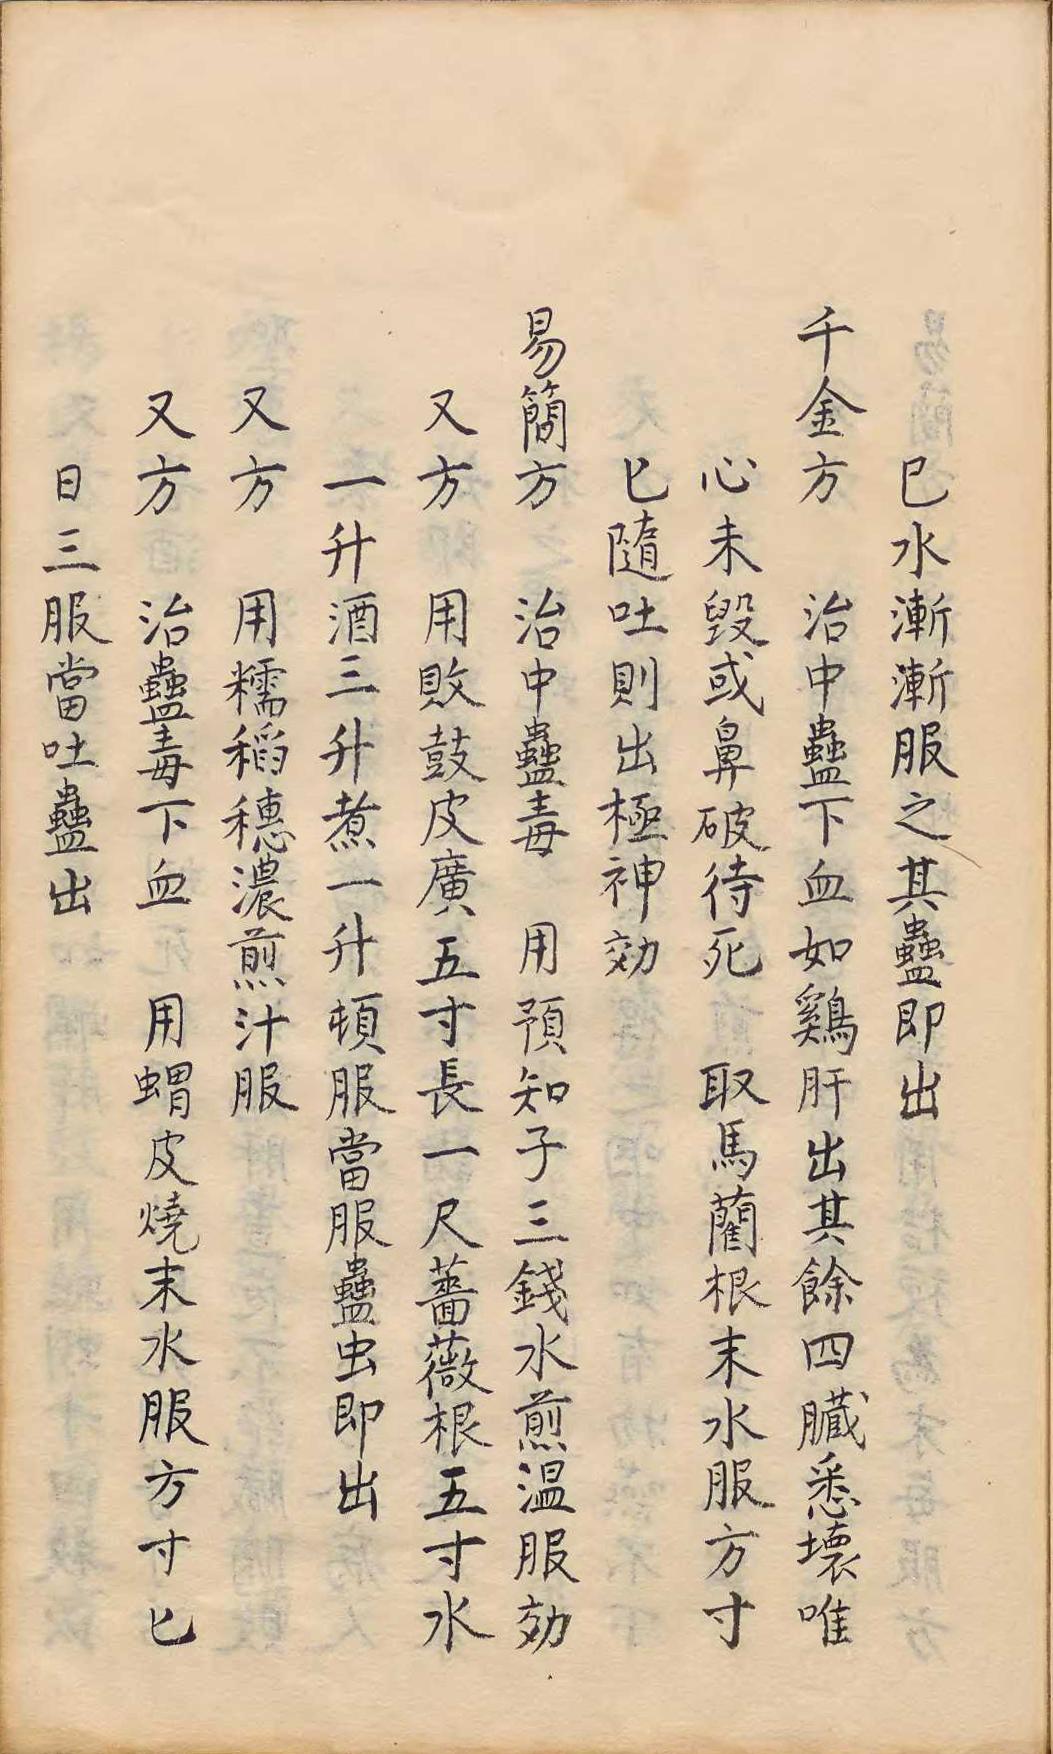 巳水漸漸服之其蠱即出
千金方　治中蠱下血如鷄肝出其餘四臓悉壞唯
心未毀或鼻破待死　取馬藺根末水服方寸
匕隨吐則出極神効
易簡方　治中蠱毒　用預知子三錢水煎温服効
又方　用敗鼓皮廣五寸長一尺薔薇根五寸水
一升酒三升煮一升頓服當服蠱虫即出
又方　用糯稻穗濃煎汁服
又方　治蠱毒下血　用蝟皮燒末水服方寸匕
日三服當吐蠱出